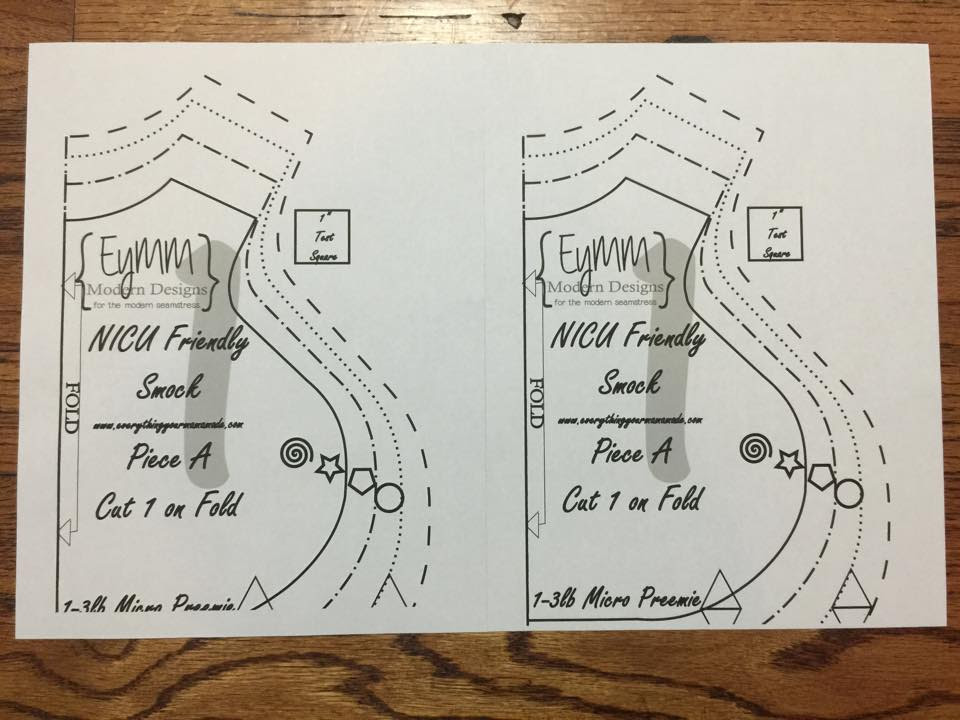 1"
Test
Square
{EyMM}
Modern Designs
for the modern seamstress
NICU Friendly
Smock
www.everythingyourmamamade.com
Piece A
Cut 1 on Fold
FOLD
1
1-3lb Micro Preemie
1"
Test
Square
{EyMM}
Modern Designs
for the modern seamstress
NICU Friendly
Smock
www.everythingyourmamamade.com
Piece A
Cut 1 on Fold
FOLD
1
1-3lb Micro Preemie